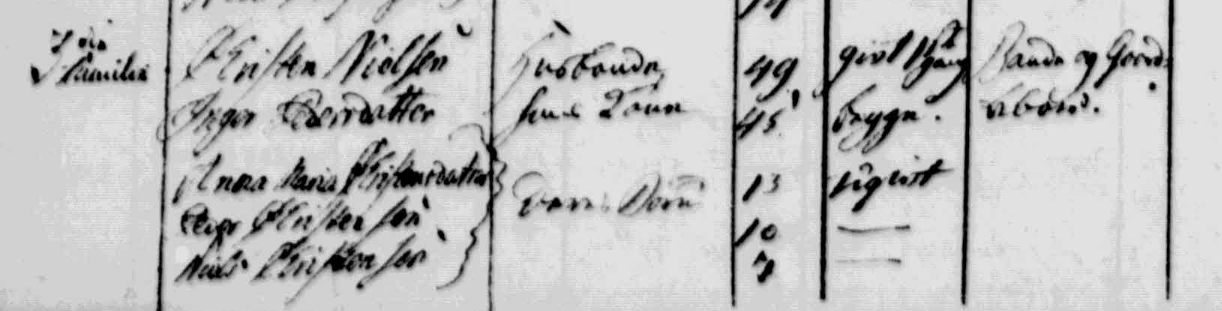 7de Familie Christen Nielsen Husbonde 49 givt 1ste Gang Bonde og Gaard-
Inger Peersdatter hans Kone 45 begge. beboer.
Anna Maria Christensdatter 13 ugivt
Peer Christensen deres Børn 10 —
Niels Christensen 7 —